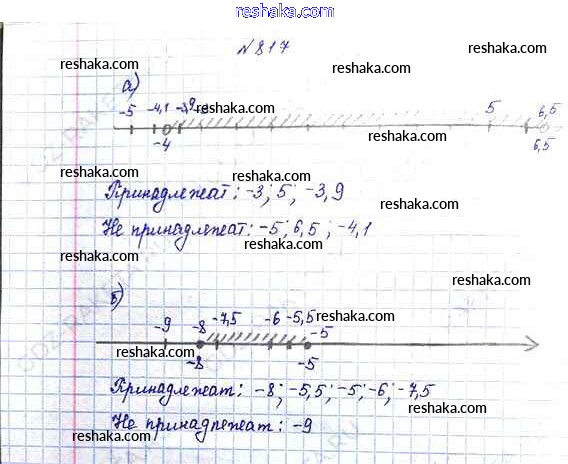 www.reshaka.com
№817
reshaka.com
reshaka.com
reshaka.com
а)
reshaka.com
-5 -4,1 -3,9 5 6,5
reshaka.com
-4 6,5
reshaka.com
reshaka.com
Принадлежат: -3; 5; -3,9
Не принадлежат: -5; 6,5; -4,1
reshaka.com
reshaka.com
reshaka.com
б)
-9 -8 -7,5 -6 -5,5 -5
reshaka.com
reshaka.com
-8 -5
reshaka.com
Принадлежат: -8; -5,5; -5; -6; -7,5
reshaka.com
Не принадлежат: -9
reshaka.com
www.reshaka.com